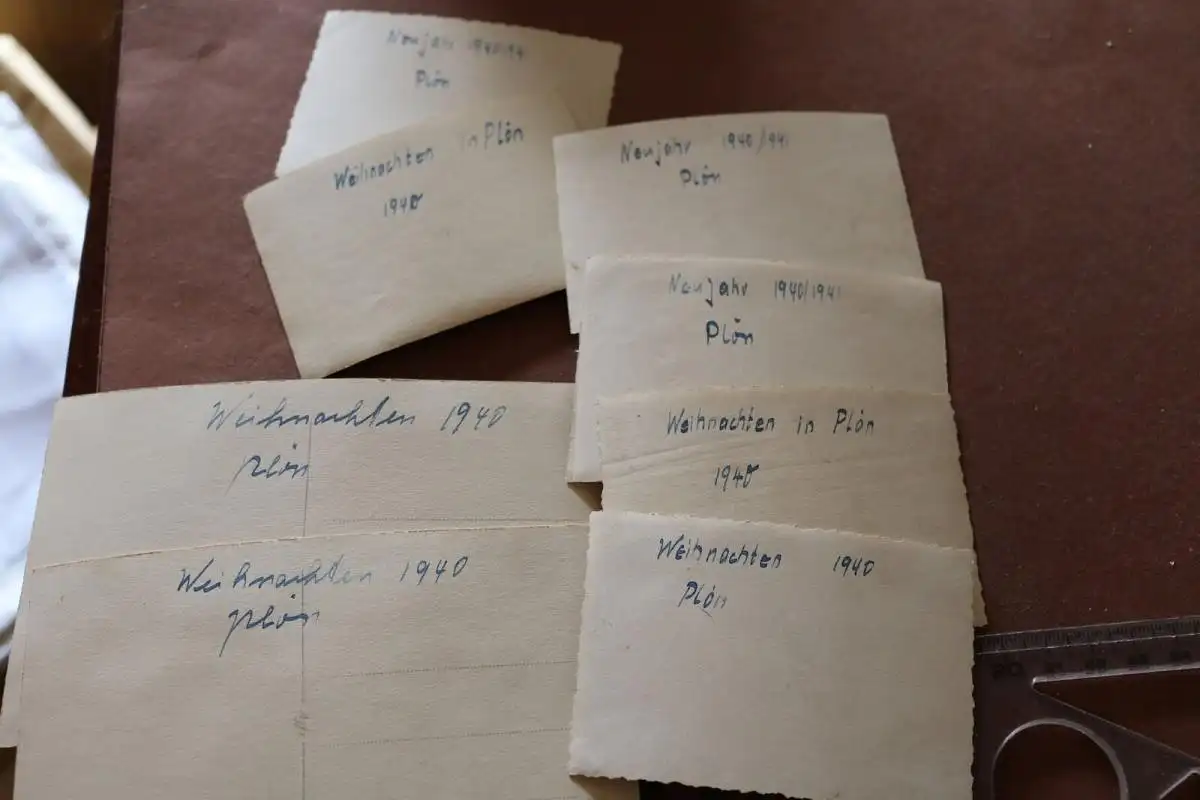 Neujahr 1940/194
Plön
Weihnachten in Plön
1940
Neujahr 1940/941
Plön
Neujahr 1940/1941
Plön
Weihnachten in Plön
1940
Weihnachten 1940
Plön
Weihnachten 1940
Plön
Weihnachten 1940
Plön